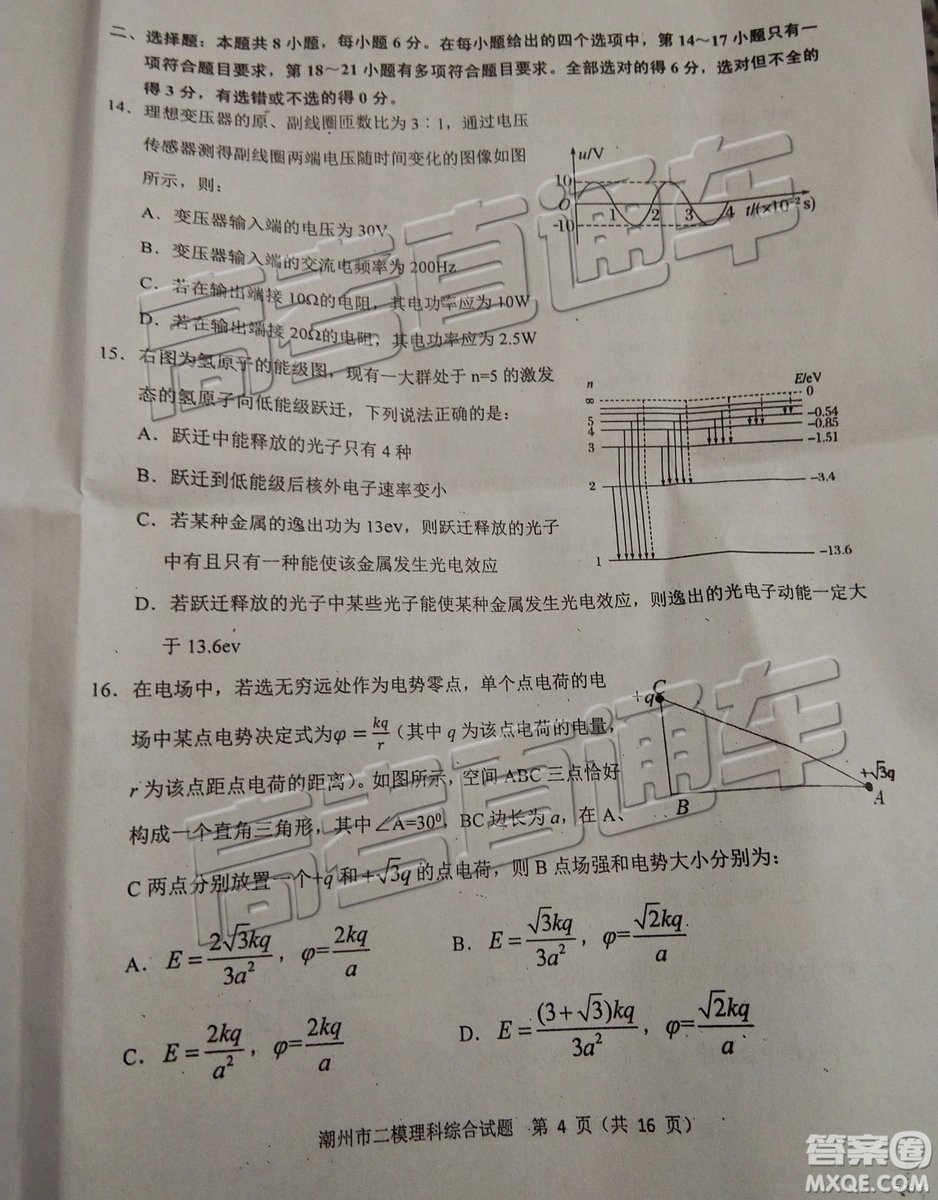 二、选择题：本题共 8 小题，每小题 6 分。在每小题给出的四个选项中，第 14～17 小题只有一
项符合题目要求，第 18～21 小题有多项符合题目要求。全部选对的得 6 分，选对但不全的
得 3 分，有选错或不选的得 0 分。
14．理想变压器的原、副线圈匝数比为 3∶1，通过电压
传感器测得副线圈两端电压随时间变化的图像如图
所示，则：
A．变压器输入端的电压为 30V
B．变压器输入端的交流电频率为 200Hz
C．若在输出端接 10Ω的电阻，其电功率应为 10W
D．若在输出端接 20Ω的电阻，其电功率应为 2.5W
u/V
10
O
-10
1 2 3 4 t/(×10⁻²s)
15．右图为氢原子的能级图，现有一大群处于 n=5 的激发
态的氢原子向低能级跃迁，下列说法正确的是：
A．跃迁中能释放的光子只有 4 种
B．跃迁到低能级后核外电子速率变小
C．若某种金属的逸出功为 13ev，则跃迁释放的光子
中有且只有一种能使该金属发生光电效应
D．若跃迁释放的光子中某些光子能使某种金属发生光电效应，则逸出的光电子动能一定大
于 13.6ev
n E/eV
∞ 0
5 -0.54
4 -0.85
3 -1.51
2 -3.4
1 -13.6
16．在电场中，若选无穷远处作为电势零点，单个点电荷的电
场中某点电势决定式为φ=kq/r（其中 q 为该点电荷的电量，
r 为该点距点电荷的距离）。如图所示，空间 ABC 三点恰好
构成一个直角三角形，其中∠A=30⁰，BC 边长为 a，在 A、
C 两点分别放置一个+q 和+√3q 的点电荷，则 B 点场强和电势大小分别为：
+q C
+√3q
B
A
A．E=2√3kq/3a²，φ=2kq/a
B．E=√3kq/3a²，φ=√2kq/a
C．E=2kq/a²，φ=2kq/a
D．E=(3+√3)kq/3a²，φ=√2kq/a
潮州市二模理科综合试题 第 4 页（共 16 页）
高考直通车
高考直通车
答案圈
MXQE.COM